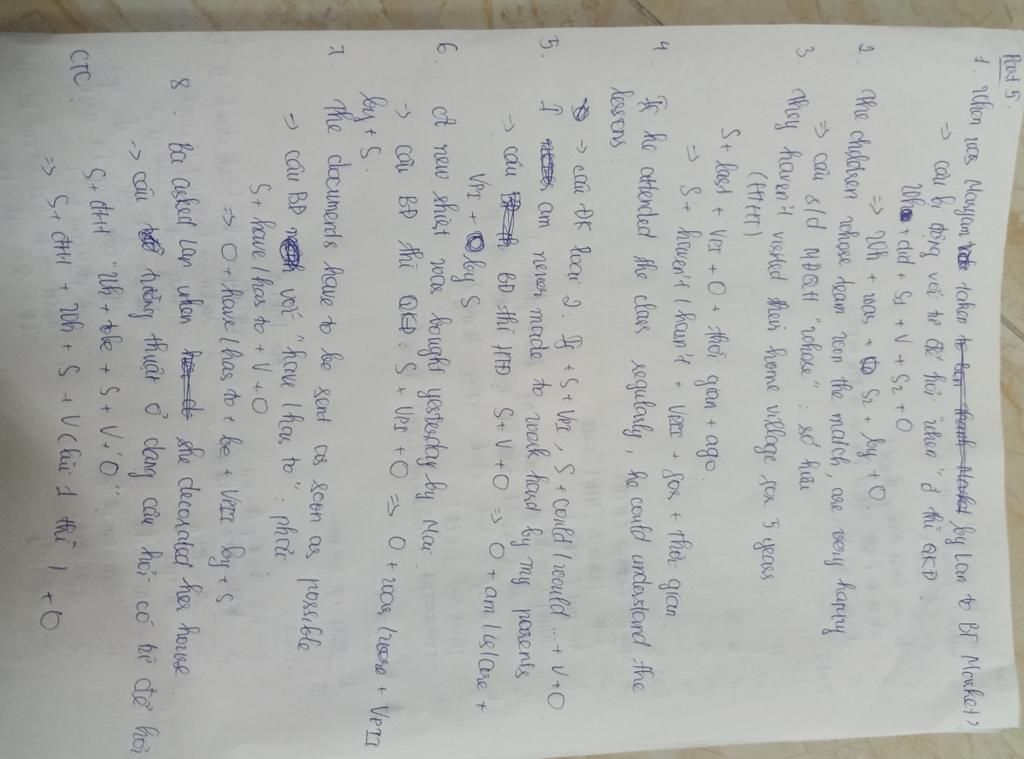 Part 5:
1. When was Maryam taken by Lan to BT Market?
=> câu bị động với từ để hỏi "when" ở thì QKĐ
Wh + did + S1 + V + S2 + O
=> Wh + was + S2 + by + O.
2. The children whose team won the match, are very happy
=> câu s/d MĐQH "whose": sở hữu
3. They haven't visited their home village for 5 years
(HTHT)
S + last + VPI + O + thời gian + ago.
=> S + haven't / hasn't + VPII + for + thời gian.
4. If he attended the class regularly, he could understand the
lessons
=> câu ĐK loại 2: If + S + VPI, S + could / would ... + V + O
5. I am never made to work hard by my parents
=> câu BĐ thì HTĐ: S + V + O => O + am / is / are +
VPI + by S
6. A new shirt was bought yesterday by Mai.
=> câu BĐ thì QKĐ: S + VPI + O => O + was / were + VPII
by + S.
7. The documents have to be sent as soon as possible.
=> câu BĐ với "have / has to": phải
S + have / has to + V + O
=> O + have / has to + be + VPII by + S
8. Ba asked Lan when she decorated her house.
=> câu tường thuật ở dạng câu hỏi có từ để hỏi
CTC: S + dtH "Wh + tobe + S + V + O"
=> S + dtH + Wh + S + V (lùi 1 thì) + O